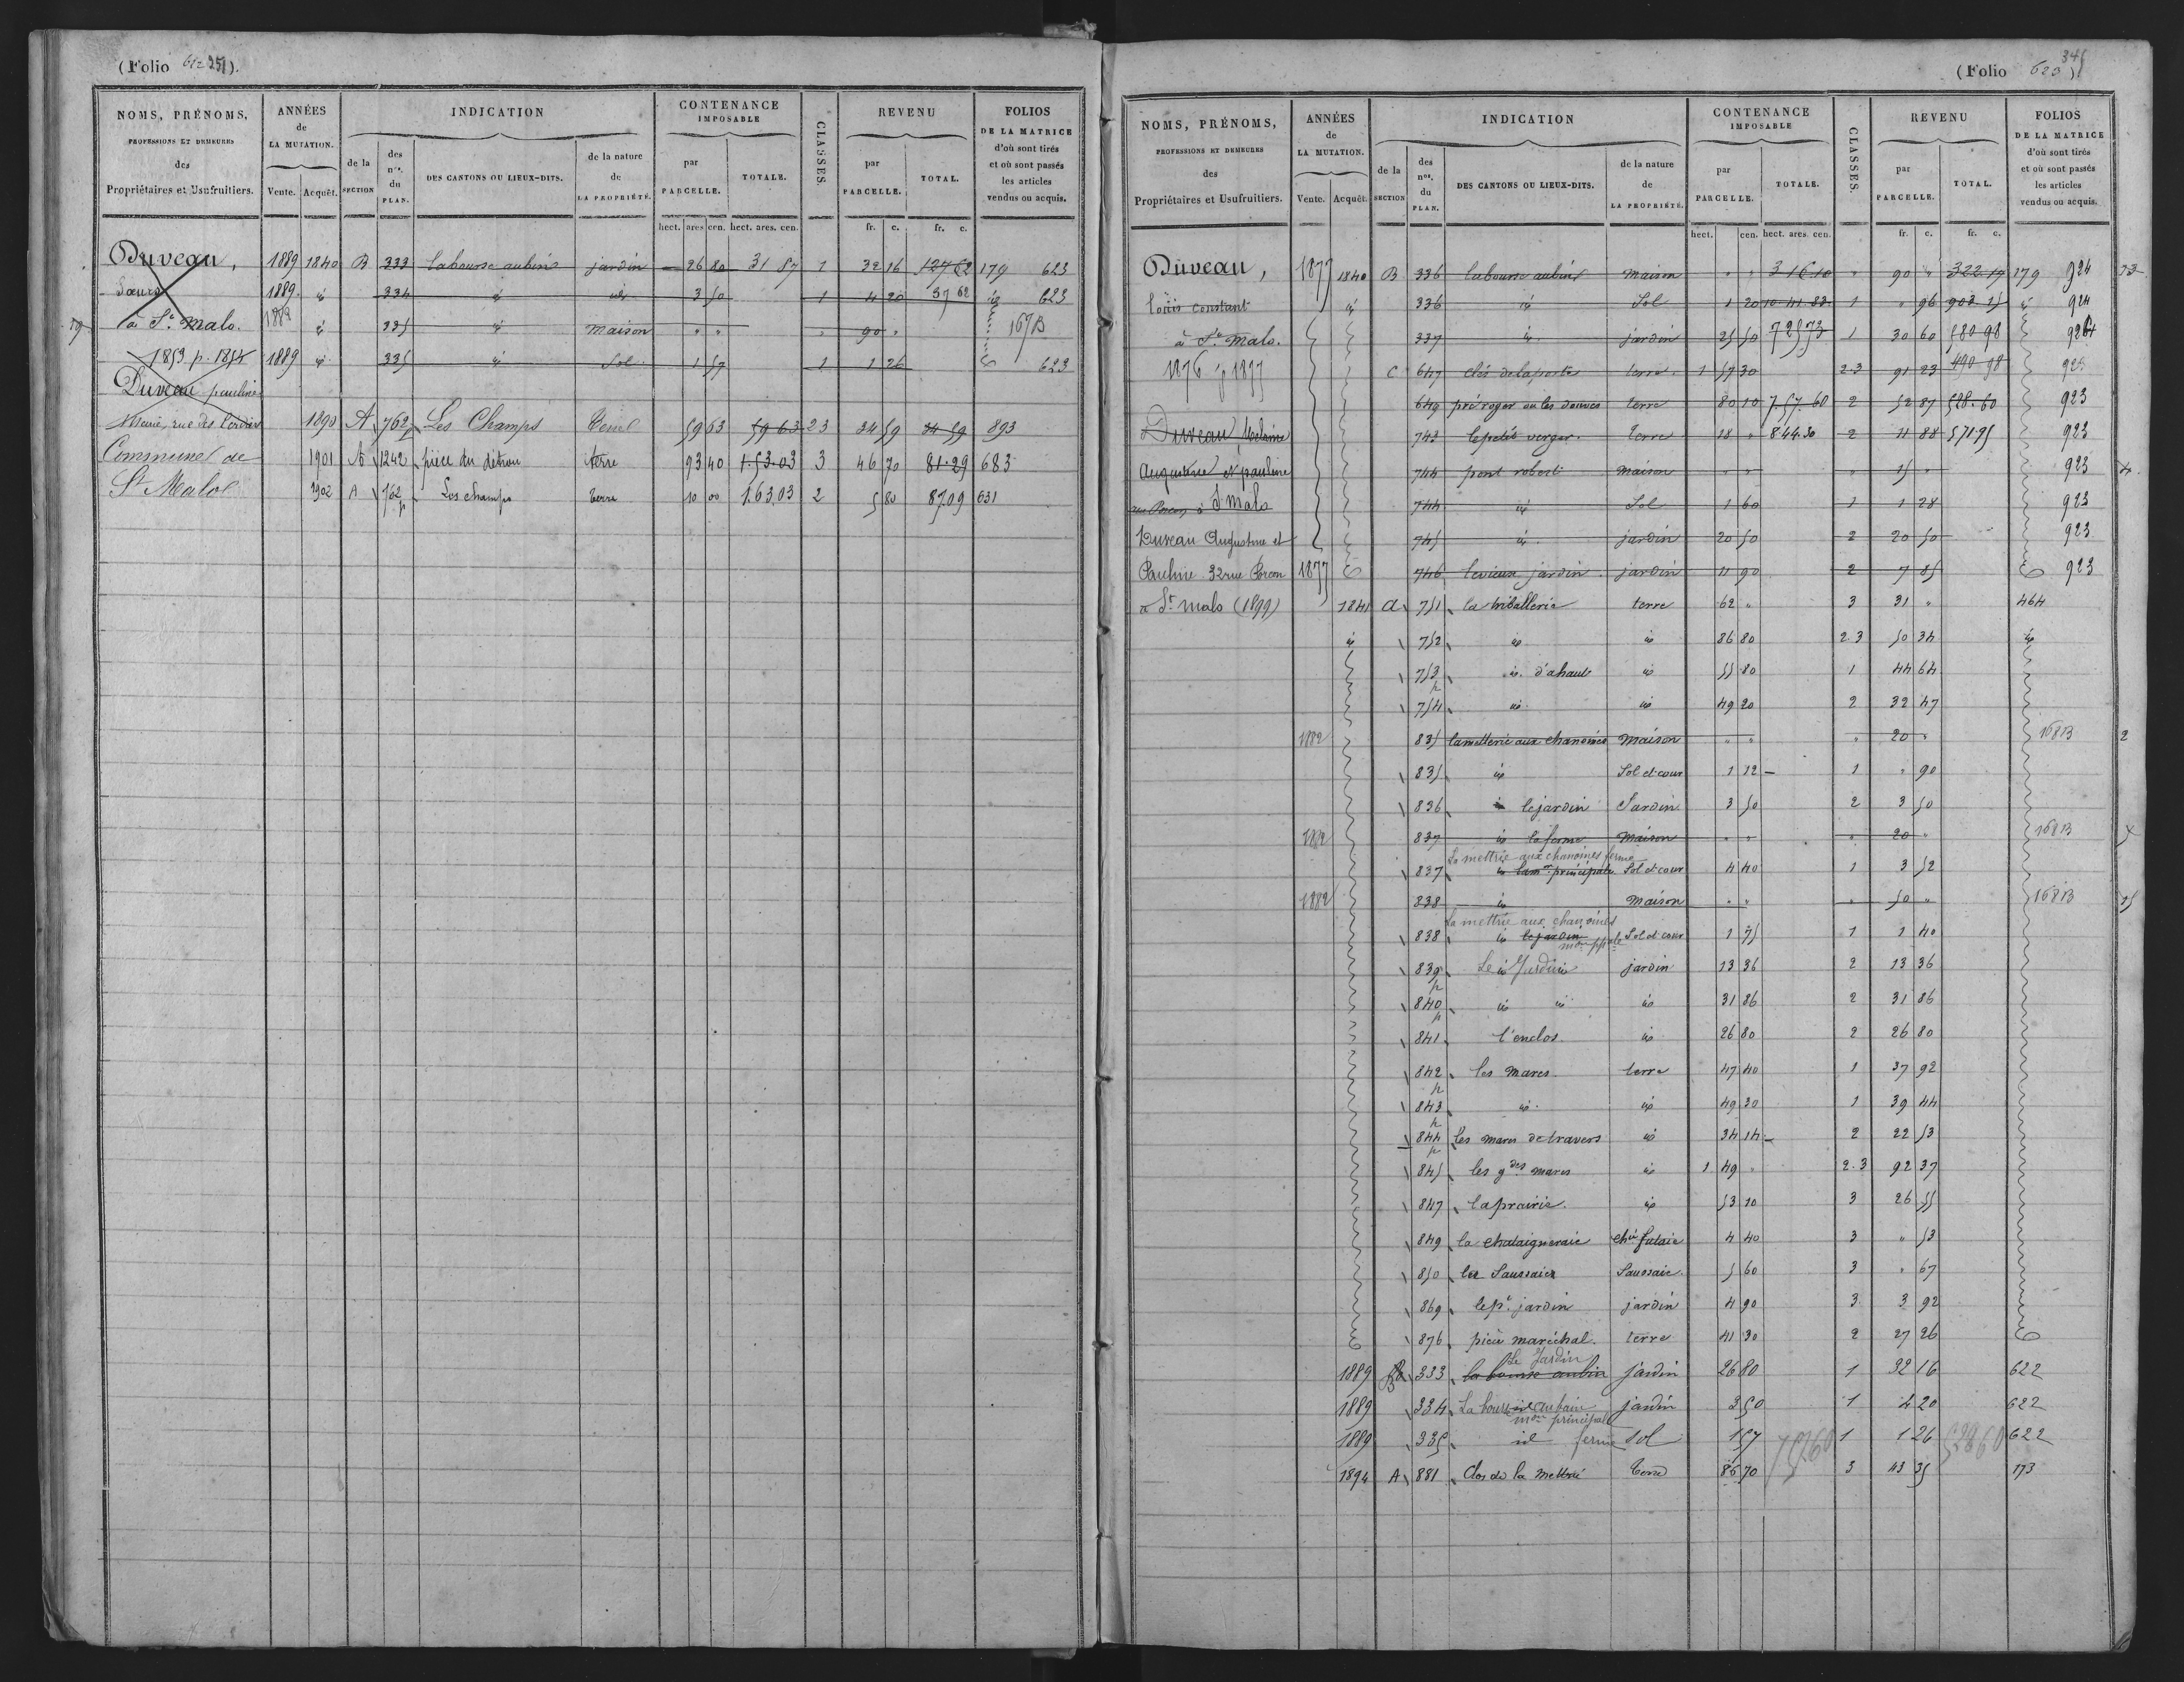 (Folio 622 251).
NOMS, PRÉNOMS, PROFESSIONS ET DEMEURES des Propriétaires et Usufruitiers.
ANNÉES de LA MUTATION. Vente. Acquêt.
INDICATION de la SECTION des nos. du PLAN. DES CANTONS OU LIEUX-DITS. de la nature de LA PROPRIÉTÉ.
CONTENANCE IMPOSABLE par PARCELLE. TOTALE.
CLASSES.
REVENU par PARCELLE. TOTAL.
FOLIOS DE LA MATRICE d'où sont tirés et où sont passés les articles vendus ou acquis.
hect. ares cen. hect. ares. cen. fr. c. fr. c.
Duveau, 1889 1840 B 333 la bourse aubin jardin 26 80 31 87 1 32 16 127 62 179 623
Sœurs 1889 id 334 id id 3 50 1 4 20 37 62 id 623
à St. Malo. 1882 id 335 id maison " " " 90 " 167B
1853 p. 1854 1889 id 335 id Sol 1 57 1 1 26 623
Duveau pauline
1890 A 762p Les Champs 59 63 59 63 23 34 59 34 59 893
Commune de 1901 A 1242 pièce du détrou terre 93 40 1.53.03 3 46 70 81.29 683
St Malo 1902 A 762p Les champs terre 10 00 1.63.03 2 5 80 87.09 631
(Folio 623) 345
NOMS, PRÉNOMS, PROFESSIONS ET DEMEURES des Propriétaires et Usufruitiers.
ANNÉES de LA MUTATION. Vente. Acquêt.
INDICATION de la SECTION des nos. du PLAN. DES CANTONS OU LIEUX-DITS. de la nature de LA PROPRIÉTÉ.
CONTENANCE IMPOSABLE par PARCELLE. TOTALE.
CLASSES.
REVENU par PARCELLE. TOTAL.
FOLIOS DE LA MATRICE d'où sont tirés et où sont passés les articles vendus ou acquis.
hect. cen. hect. ares. cen. fr. c. fr. c.
Duveau, 1877 1840 B 336 la bourse aubin maison " " " 90 " 322 17 179 924
Louis constant id 336 id Sol 1 20 10.41.83 1 " 96 903.25 id 924
à St. malo. 337 id jardin 25 50 7 25 73 1 30 60 580 98 924
1876 p 1877 C 647 clos de la porte terre 1 57 30 2.3 91 23 490 98 923
649 pré roger ou les douves terre 80 10 7.57.60 2 52 87 528.60 923
Duveau Melaine 743 le petit verger terre 18 " 8.44.30 2 11 88 571.95 923
Augustine et pauline 744 pont robert maison " " " 15 " 923
à St Malo 744 id Sol 1 60 1 1 28 923
Duveau Augustine et 745 id jardin 20 50 2 20 50 923
Pauline 32 rue Porcon 1877 746 le vieux jardin jardin 11 90 2 7 85 923
à St malo (1899) 1841 A 751 la tribalterie terre 62 " 3 31 " 464
id 752 id id 86 80 2.3 50 34 id
753 id d'ahaut id 55 80 1 44 64
754 id id 49 20 2 32 47
1882 835 la mettrie aux chanoines maison " " " 20 " 168B 2
835 id Sol et cour 1 12 1 " 90
836 id le jardin Jardin 3 50 2 3 50
1882 837 id la ferme maison " " " 20 " 168B
La mettrie aux chanoines ferme
837 id la mon principale Sol et cour 4 40 1 3 52
1882 838 id maison " " " 50 " 168B
La mettrie aux chanoines
838 id le jardin mon ppale Sol et cour 1 75 1 1 40
839p Le id Jardin jardin 13 36 2 13 36
840p id id id 31 86 2 31 86
841 l'enclos id 26 80 2 26 80
842p les mares terre 47 40 1 37 92
843p id id 49 30 1 39 44
844p les mares de travers id 34 14 2 22 53
845 les gdes mares id 1 49 " 2.3 92 37
847 la prairie id 53 10 3 26 55
849 la chataigneraie futaie 4 40 3 " 53
850 les Saussaies Saussaie 5 60 3 " 67
869 le pt. jardin jardin 4 90 3 3 92
876 pièce maréchal terre 41 30 2 27 26
Le Jardin
1889 B 333 la bourse aubin jardin 26 80 1 32 16 622
1889 334 La bourse aubain jardin 3 50 1 4 20 622
mon principale
1889 335 id ferme sol 1 57 75760 1 1 26 52860 622
1894 A 881 Clos de la Mettrie terre 86 70 3 43 35 173